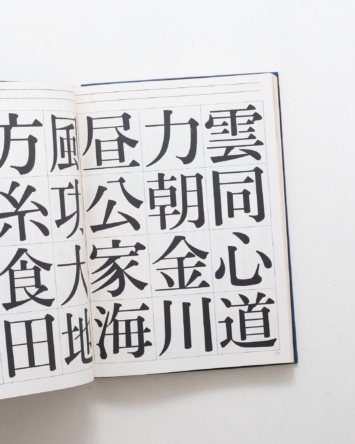 雲同心道
力朝金川
昼公家海
風功大地
方糸食田